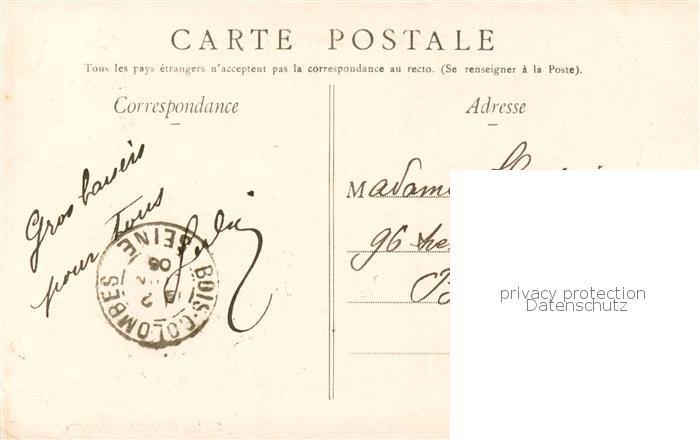 CARTE POSTALE
Tous les pays étrangers n'acceptent pas la correspondance au recto. (Se renseigner à la Poste).
Correspondance
Adresse
Gros baisers
pour Tous
BOIS-COLOMBES
SEINE
Madame
96
privacy protection
Datenschutz